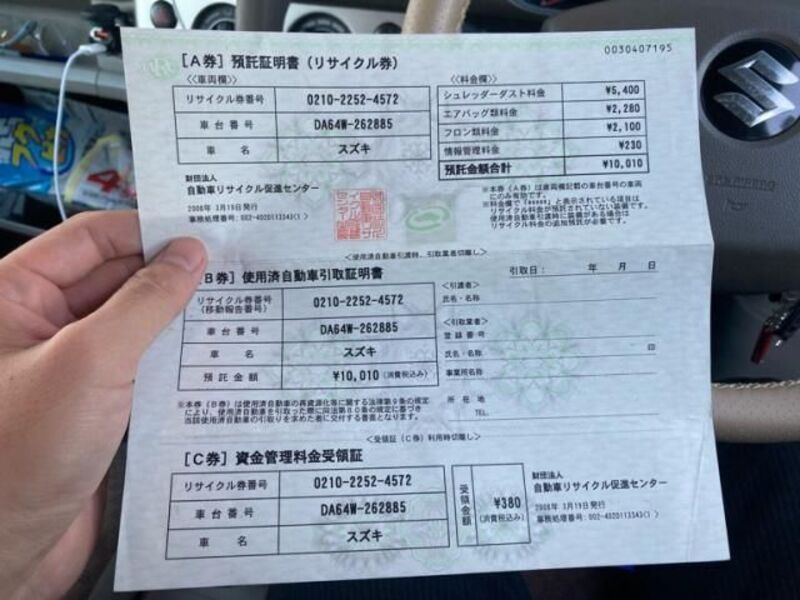 0030407195
[A券] 預託証明書 (リサイクル券)
<<車両欄>>
リサイクル券番号 0210-2252-4572
車台番号 DA64W-262885
車名 スズキ
<<料金欄>>
シュレッダーダスト料金 ¥5,400
エアバッグ類料金 ¥2,280
フロン類料金 ¥2,100
情報管理料金 ¥230
預託金額合計 ¥10,010
財団法人
自動車リサイクル促進センター
2008年 3月19日発行
事務処理番号: 002-4020113343(1)
※本券(A券)は車両欄記載の車台番号の車両
にのみ有効です。
※料金欄で「*****」と表示されている項目は
リサイクル料金が預託されていない装備です。
使用済自動車引渡時に装備がある場合は
リサイクル料金の追加預託が必要です。
<使用済自動車引渡時、引取業者切離し>
B券] 使用済自動車引取証明書
引取日: 年 月 日
リサイクル券番号
(移動報告番号) 0210-2252-4572
車台番号 DA64W-262885
車名 スズキ
預託金額 ¥10,010 (消費税込み)
<引渡者>
氏名・名称
<引取業者>
登録番号
氏名・名称 印
事業所名称
所在地
TEL.
※本券(B券)は使用済自動車の再資源化等に関する法律第9条の規定
により、使用済自動車を引取った際に同法第80条の規定に基づき
当該使用済自動車の引取りを求めた者に交付する書面となります。
<受領証(C券)利用時切離し>
[C券] 資金管理料金受領証
リサイクル券番号 0210-2252-4572
車台番号 DA64W-262885
車名 スズキ
受領金額 ¥380
(消費税込み)
財団法人
自動車リサイクル促進センター
2008年 3月19日発行
事務処理番号: 002-4020113343(1)